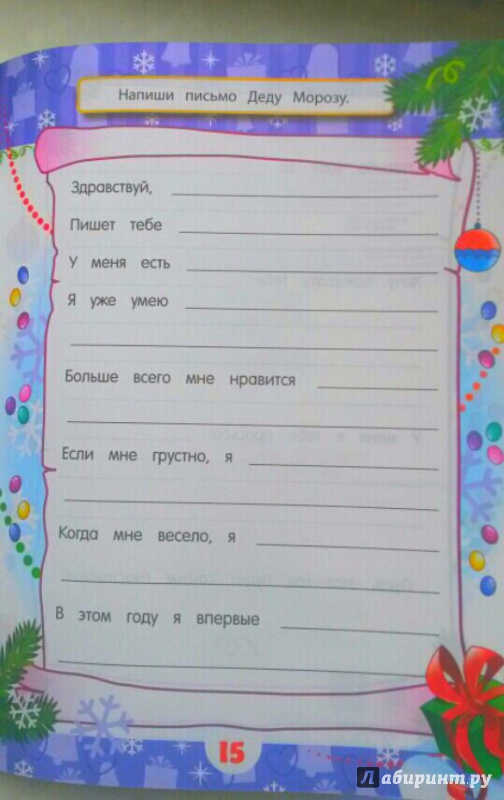 Напиши письмо Деду Морозу.
Здравствуй,
Пишет тебе
У меня есть
Я уже умею
Больше всего мне нравится
Если мне грустно, я
Когда мне весело, я
В этом году я впервые
15
Лабиринт.ру